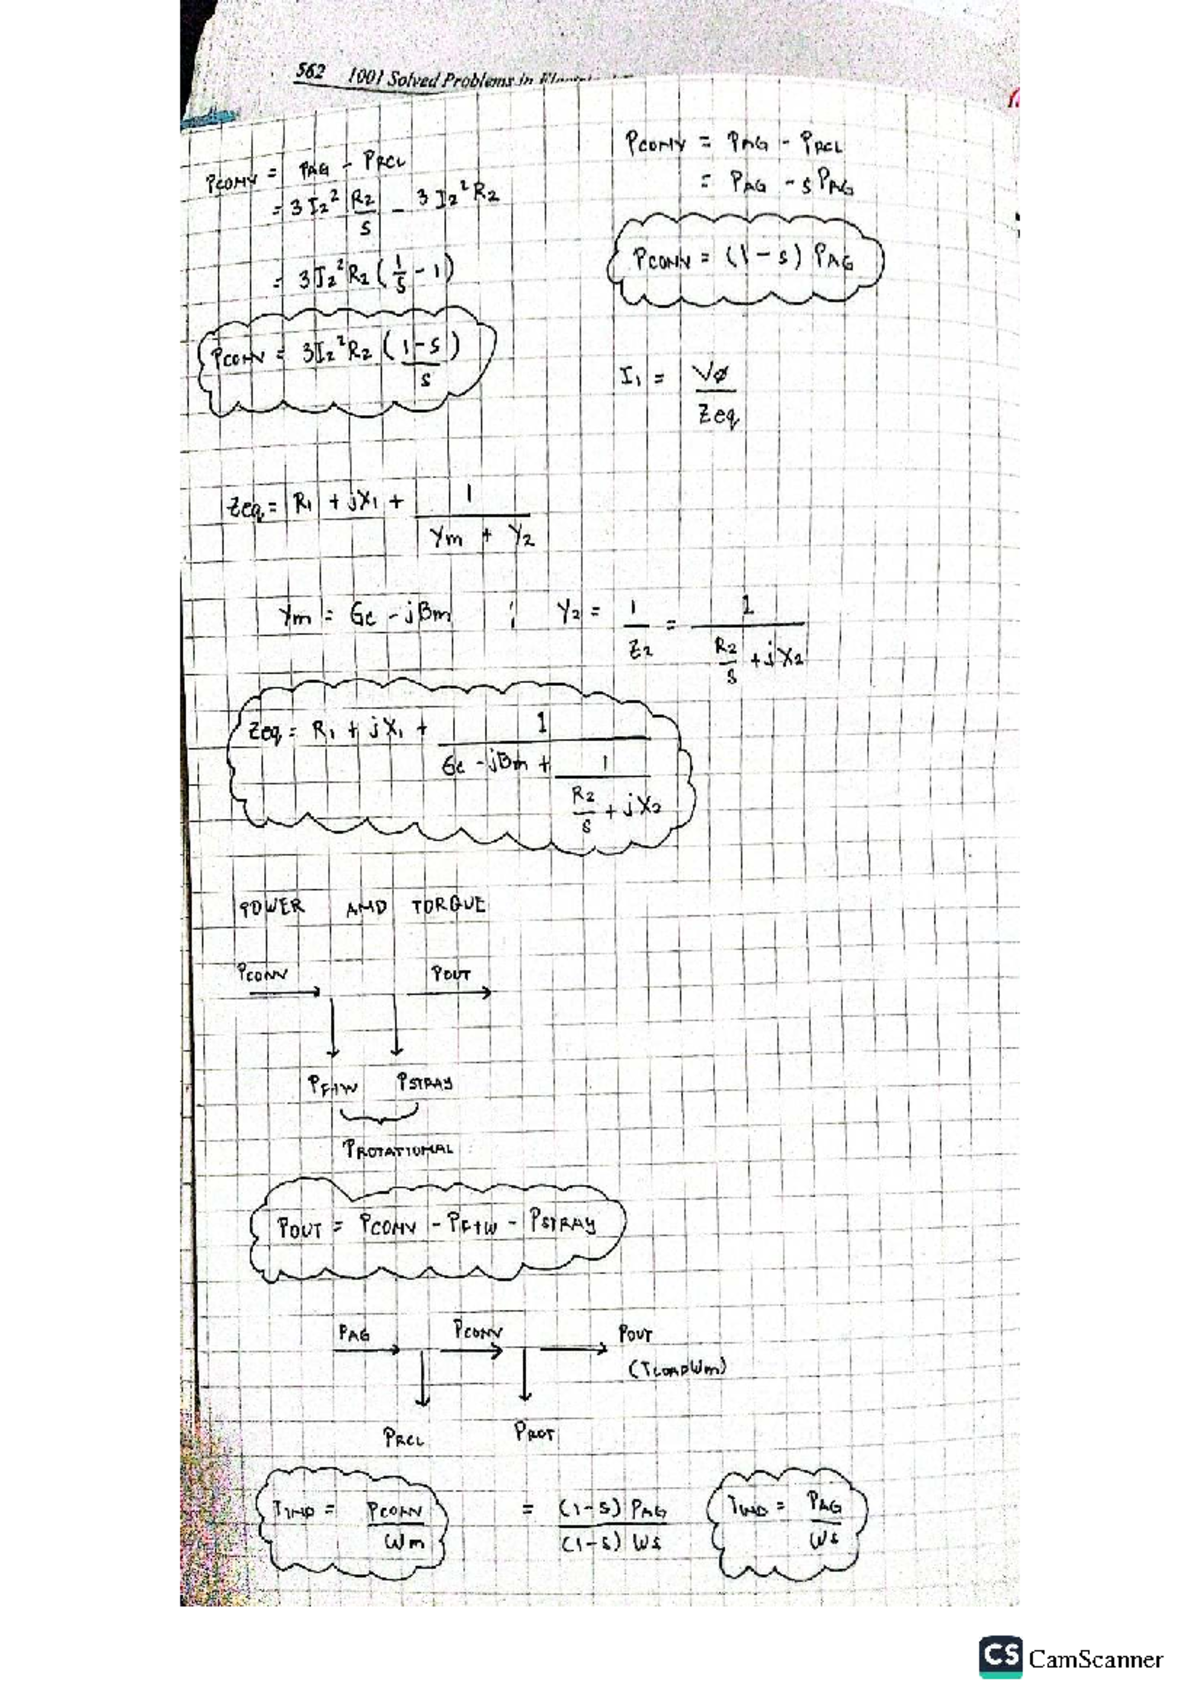 562 1001 Solved Problems in
PCONV = PAG - PRCL
= 3 I2² R2/S - 3 I2² R2
= 3 I2² R2 ( 1/S - 1 )
PCONV = 3 I2² R2 ( 1-S / S )
PCONV = PAG - PRCL
= PAG - S PAG
PCONV = (1 - S) PAG
I1 = VØ / Zeq
Zeq = R1 + jX1 + 1 / Ym + Y2
Ym = Gc - jBm ; Y2 = 1 / Z2 = 1 / R2/S + jX2
Zeq = R1 + jX1 + 1 / Gc - jBm + 1 / R2/S + jX2
POWER AND TORQUE
PCONV POUT
PF+W PSTRAY
PROTATIONAL
POUT = PCONV - PF+W - PSTRAY
PAG PCONV POUT
(TLOADWm)
PRCL PROT
TIND = PCONV / Wm = (1-S) PAG / (1-S) WS TIND = PAG / WS
CS CamScanner